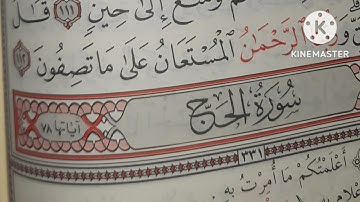 ومتع إلى حين ١١١ قل
الرحمن المستعان على ما تصفون ١١٢
سورة الحج
آياتها ٧٨
٣٣١
أعلمتكم ما أمرت به
KINEMASTER